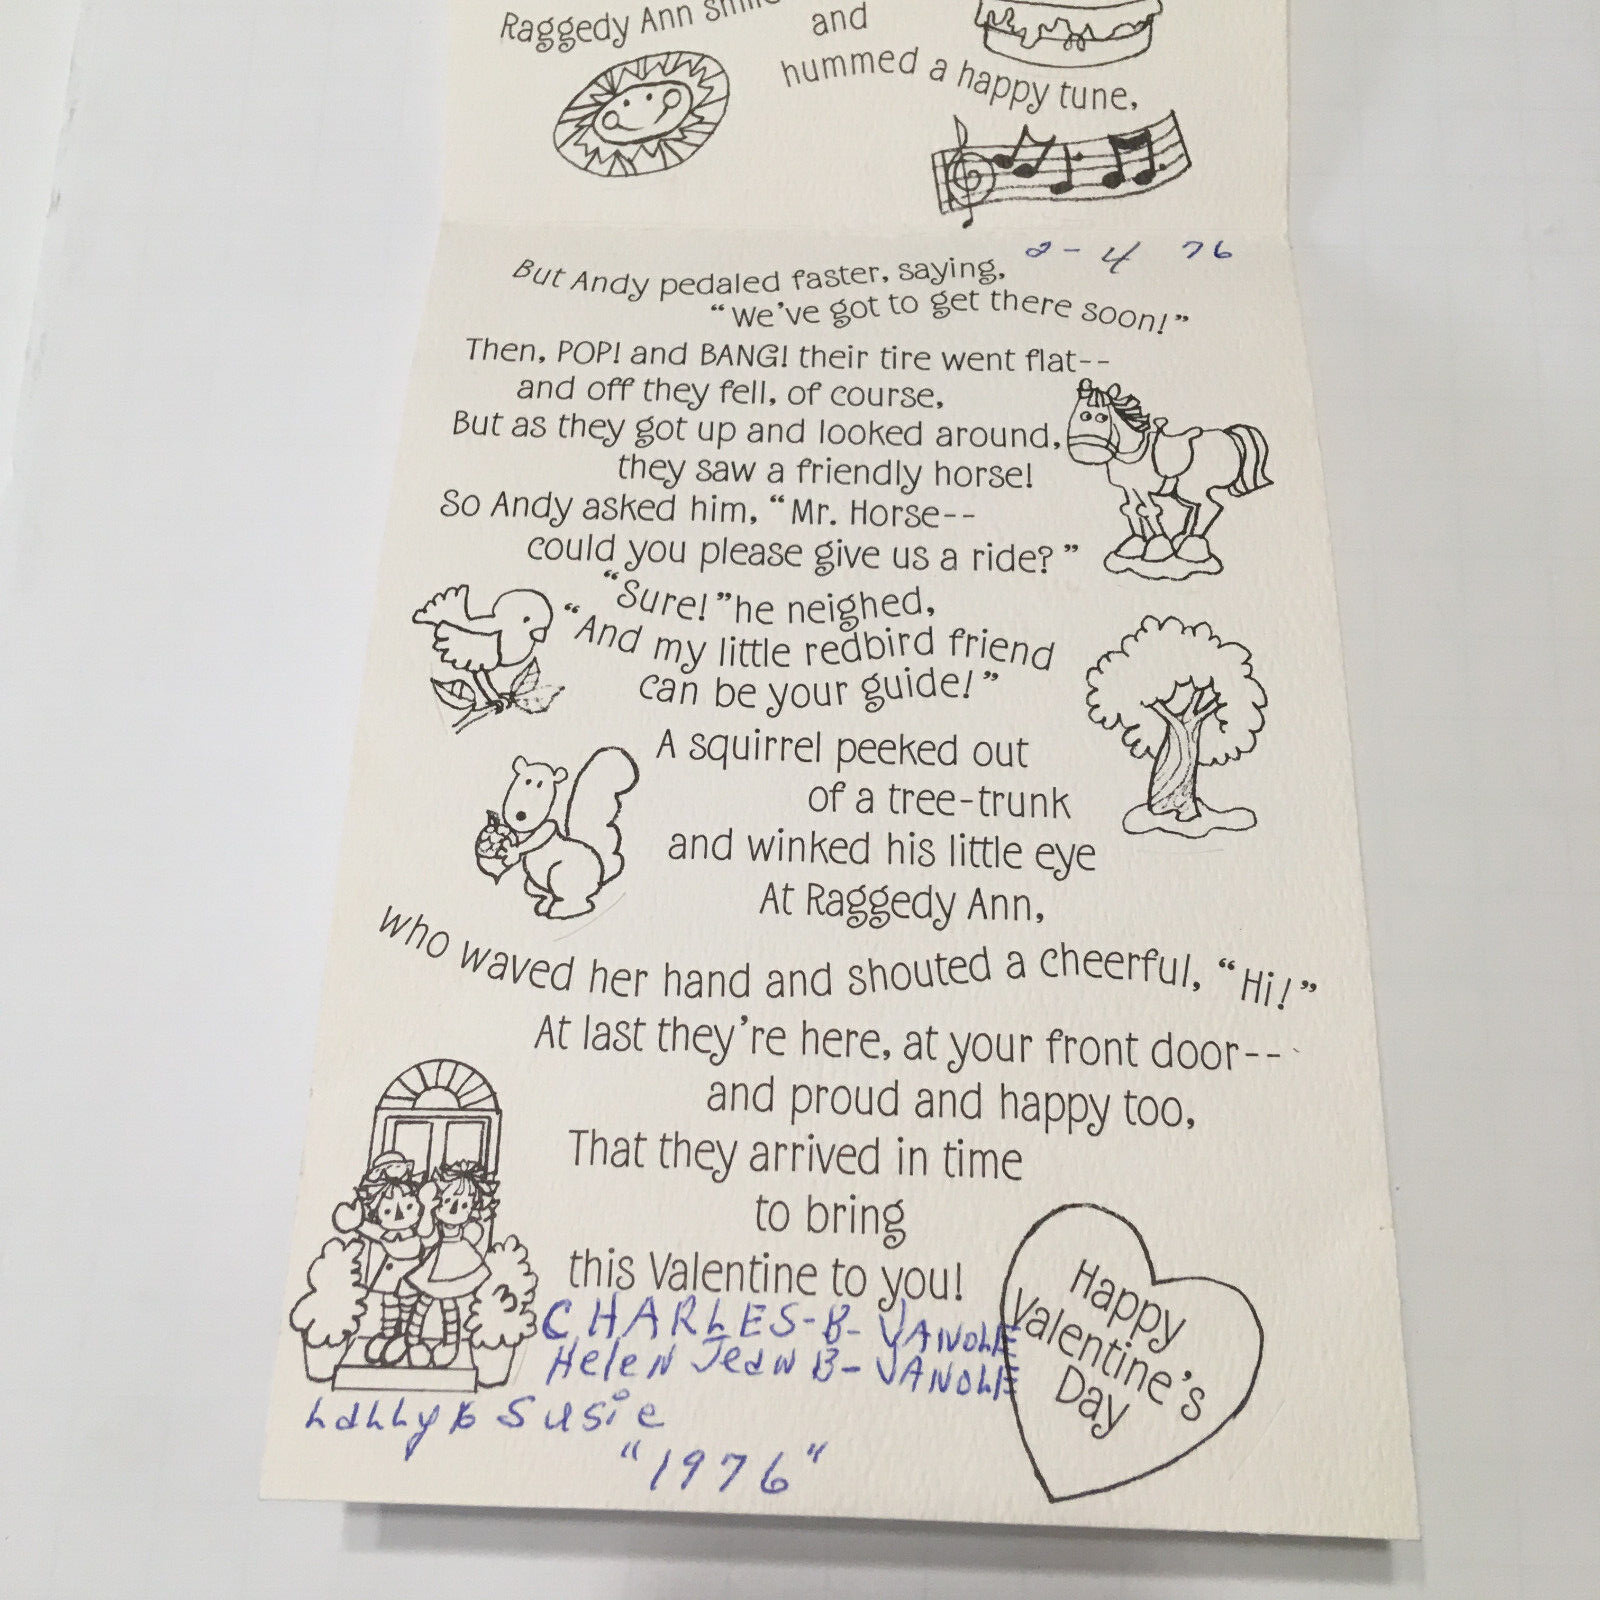 Raggedy Ann
and
hummed a happy tune,
2-4 76
But Andy pedaled faster, saying,
"We've got to get there soon!"
Then, POP! and BANG! their tire went flat--
and off they fell, of course,
But as they got up and looked around,
they saw a friendly horse!
So Andy asked him, "Mr. Horse--
could you please give us a ride?"
"Sure!" he neighed,
"And my little redbird friend
can be your guide!"
A squirrel peeked out
of a tree-trunk
and winked his little eye
At Raggedy Ann,
who waved her hand and shouted a cheerful, "Hi!"
At last they're here, at your front door--
and proud and happy too,
That they arrived in time
to bring
this Valentine to you!
Happy
Valentine's
Day
CHARLES-B-
Helen Jean B-
Susie
"1976"